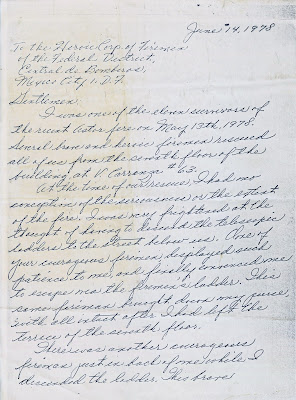 June 14, 1978
To the Heroic Corp. of Firemen
of the Federal District,
Central de Bomberos,
Mexico City 1, D.F.
Gentlemen:
I was one of the eleven survivors of
the recent Astor fire on May 13th, 1978.
Several brave and heroic firemen rescued
all of us from the seventh floor of the
building at V. Carranza #63.
At the time of our rescue, I had no
conception of the seriousness or the extent
of the fire. I was very frightened at the
thought of having to descend the telescopic
ladders to the street below us. One of
your courageous firemen displayed such
patience to me, and finally convinced me
to escape via the firemen's ladder. This
same fireman brought down my purse,
with all intact after I had left the
terrace of the seventh floor.
There was another courageous
fireman just in back of me while I
descended the ladder. This brave